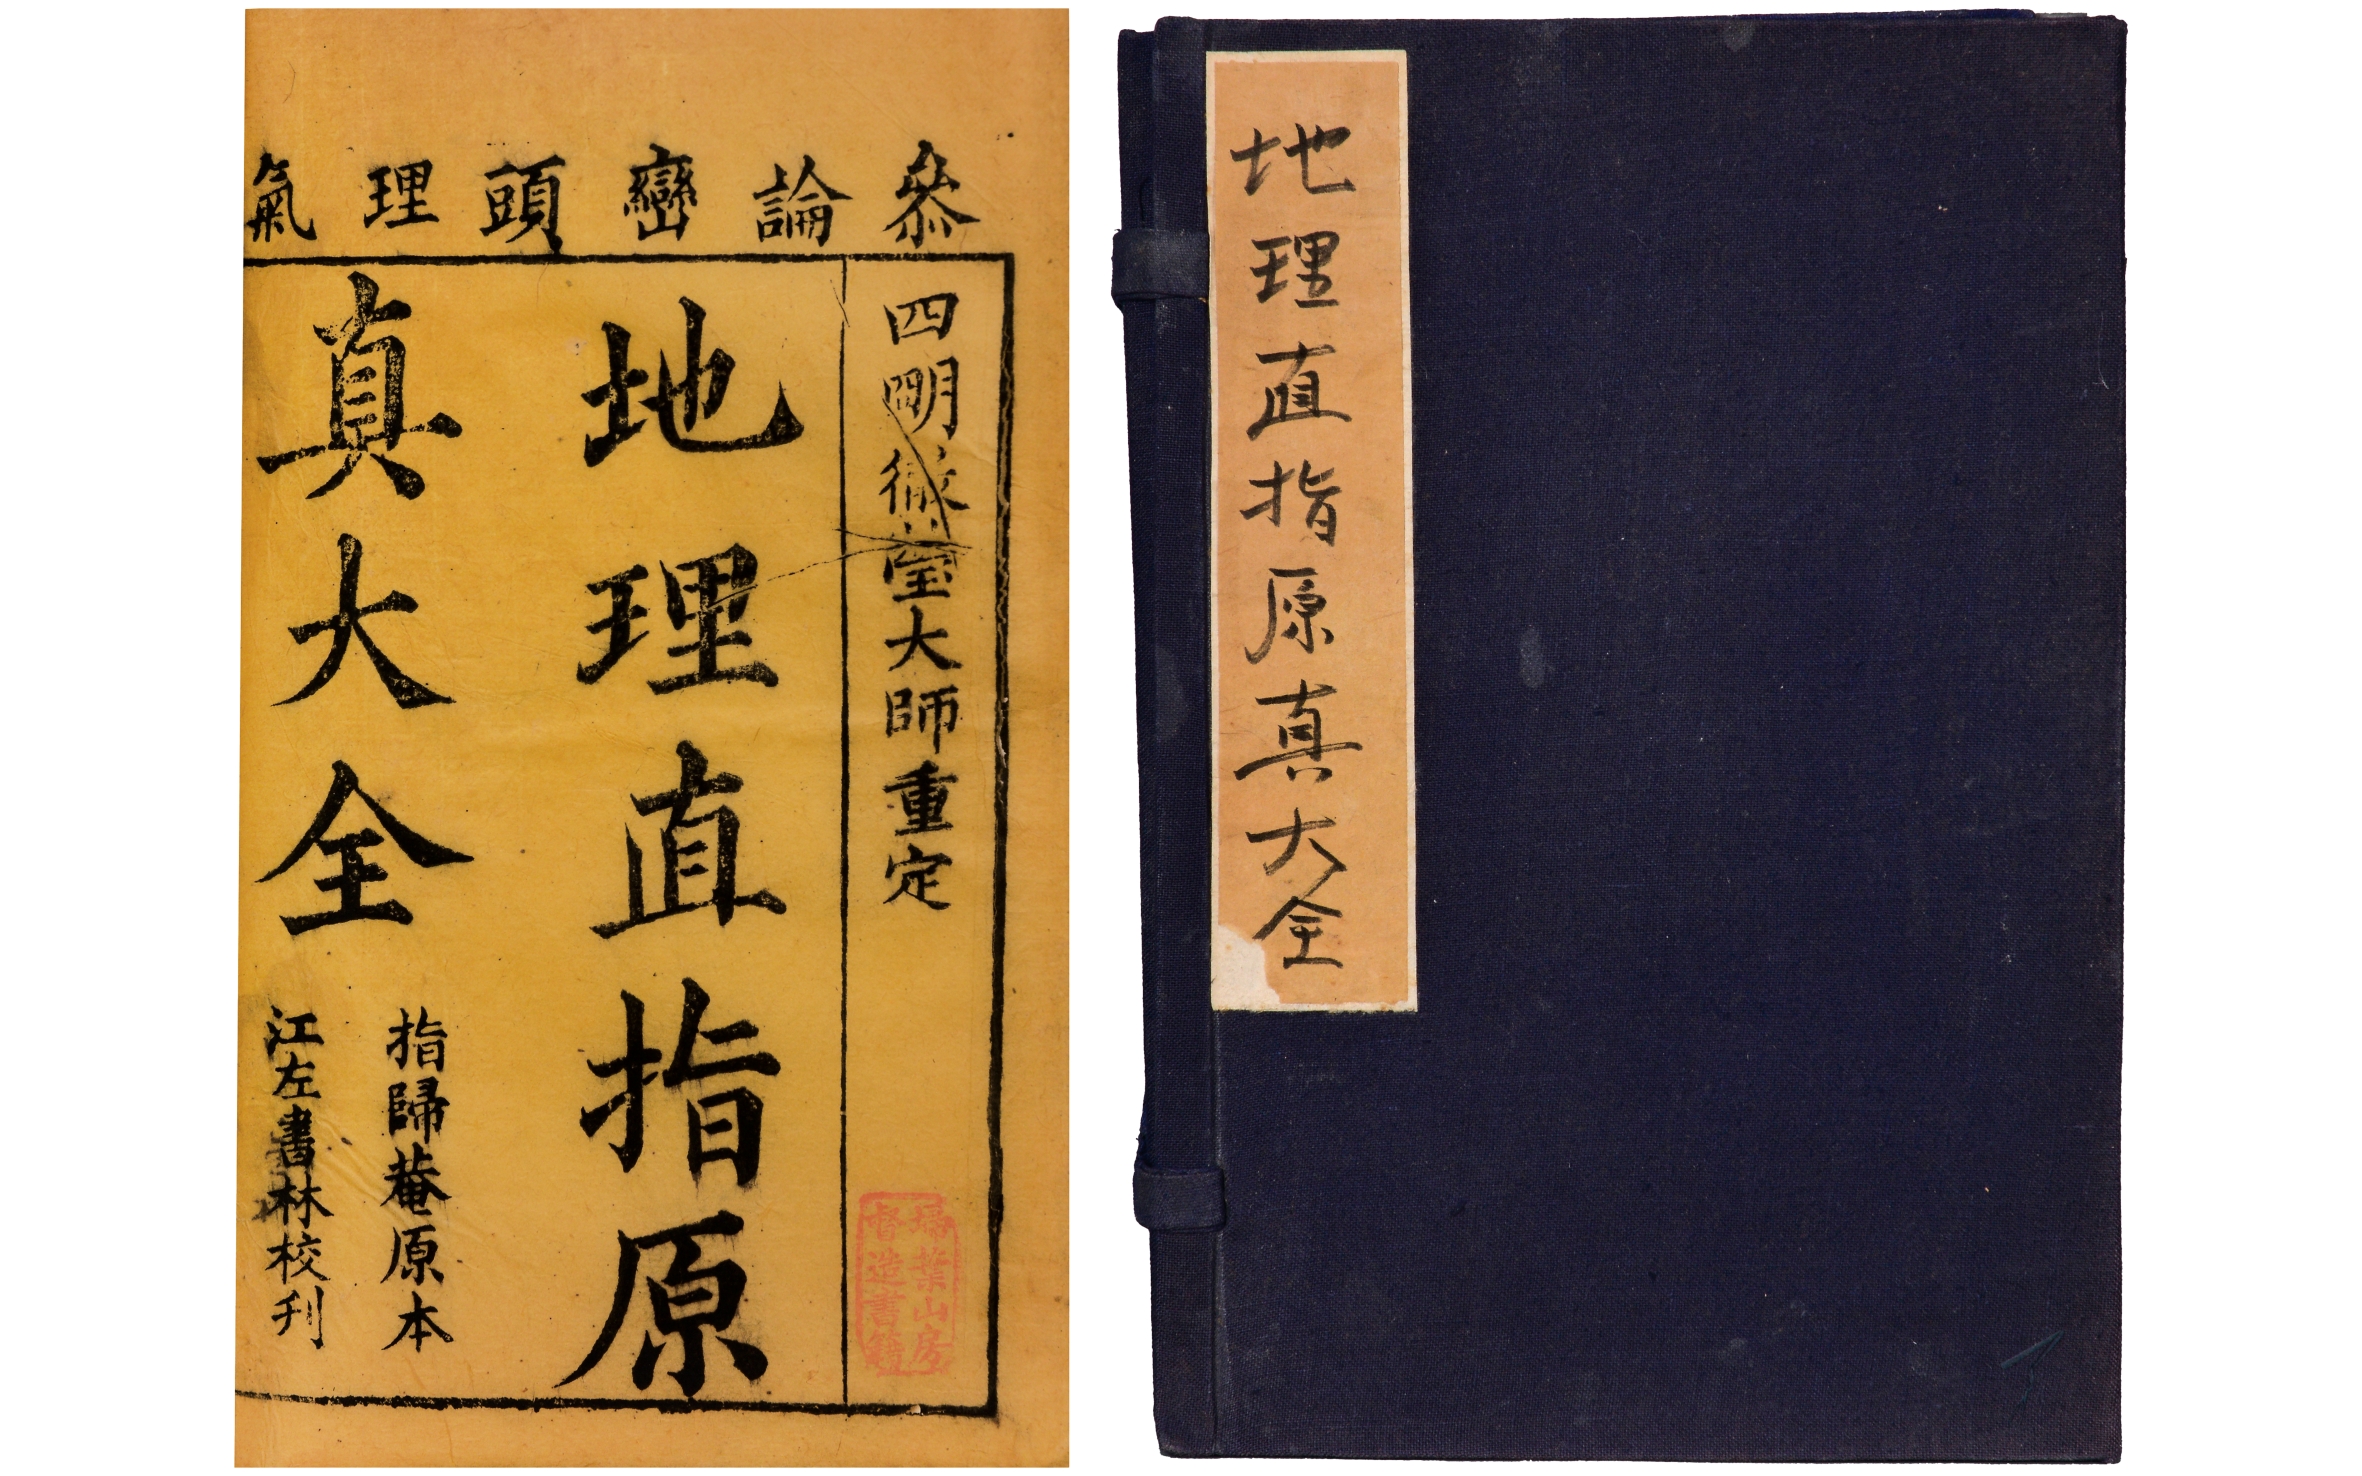 叅論巒頭理氣
四明徹瑩大師重定
地理直指原
真大全
指歸菴原本
江左書林校刋
埽葉山房
督造書籍
地理直指原真大全